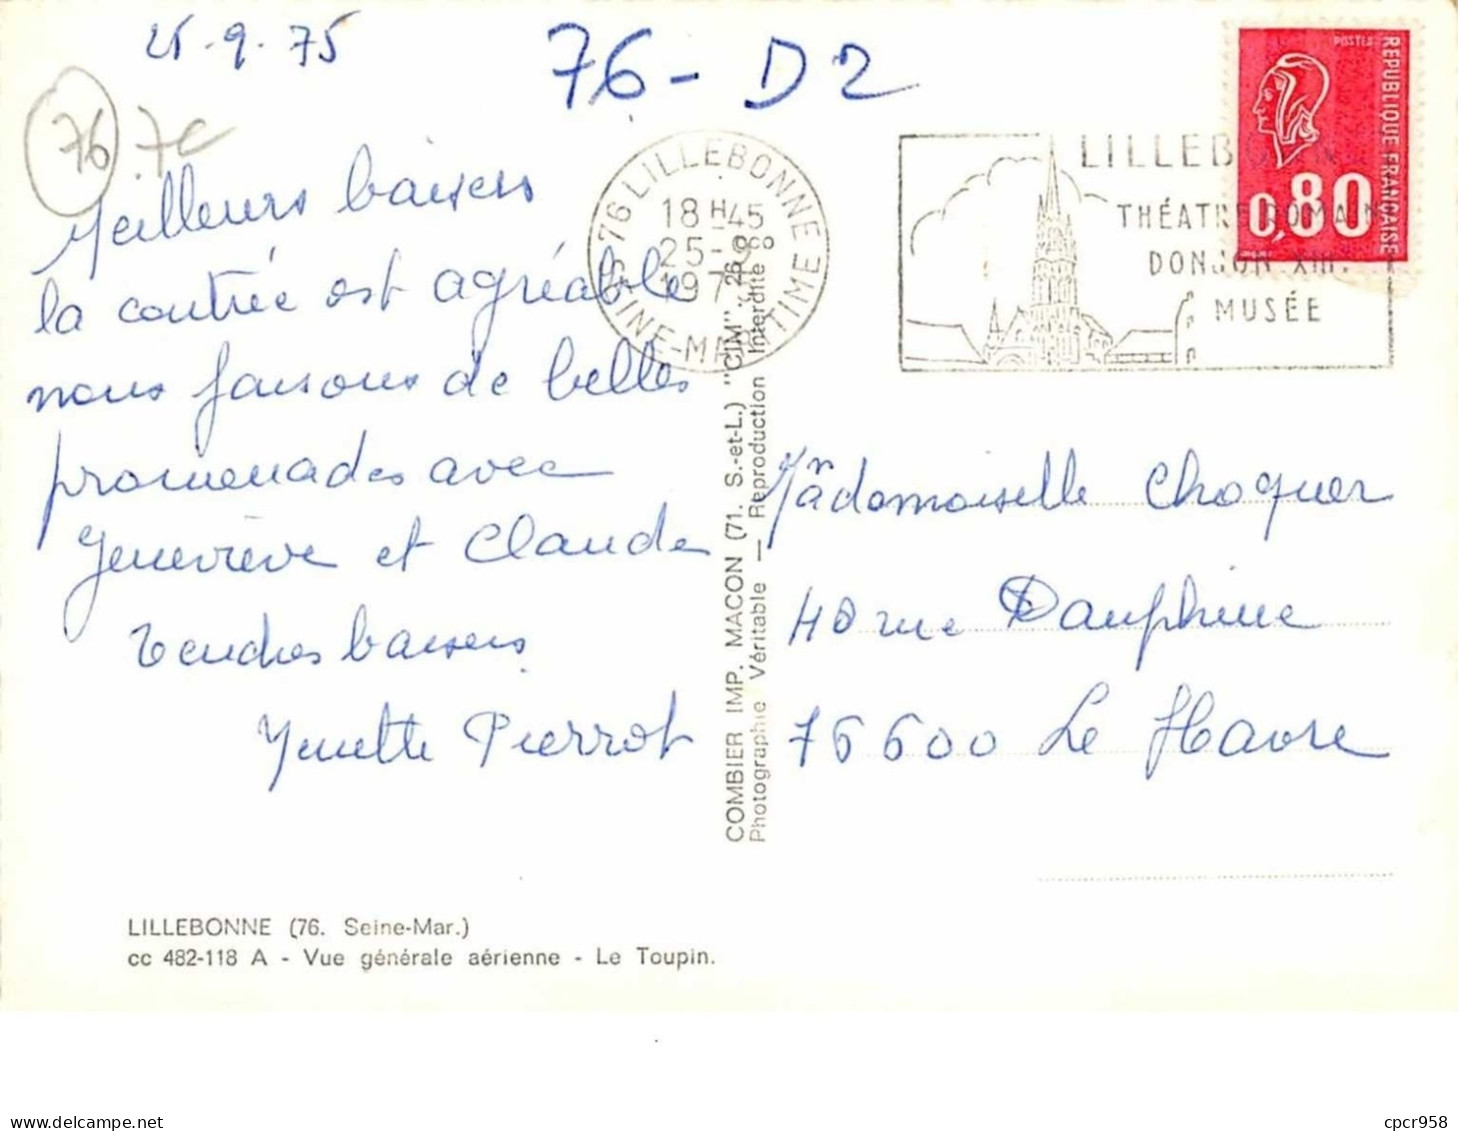 25.9.75
76 - D2
76
Meilleurs baisers
la contrée est agréable
nous faisons de belles
promenades avec
Geneviève et Claude
Tendres baisers
Pierrot
76 LILLEBONNE
18H45
25-9
SEINE-MARITIME
LILLEBONNE
THÉATRE ROMAIN
DONJON XIII.
MUSÉE
POSTES
REPUBLIQUE FRANÇAISE
0,80
COMBIER IMP. MACON (71. S.-et-L.) "CIM".
Photographie Véritable — Reproduction Interdite
Mademoiselle Choquer
40 rue Dauphine
76600 Le Havre
LILLEBONNE (76. Seine-Mar.)
cc 482-118 A - Vue générale aérienne - Le Toupin.
cpcr958